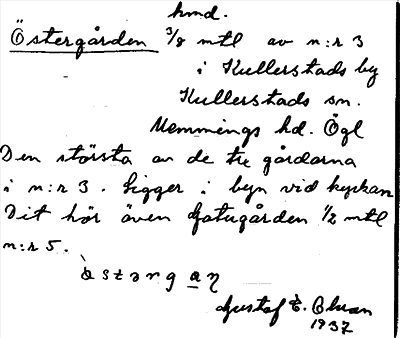 hmd.
Östergården 3/8 mtl av n:r 3
i Kullerstads by
Kullerstads sn.
Memmings hd. Ögl
Den största av de tre gårdarna
i n:r 3. Ligger i byn vid kyrkan
Dit hör även Gatugården 1/2 mtl
n:r 5.
ò s t ə r g a η
Gustaf E.
1937